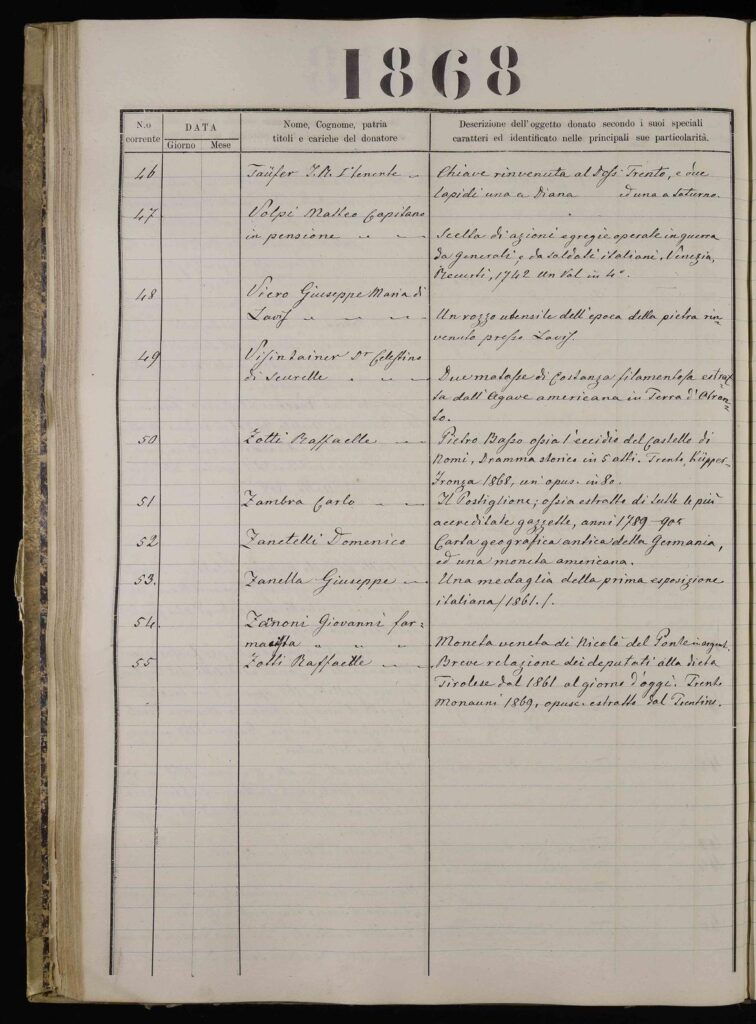 1868
N.o corrente
DATA
Giorno Mese
Nome, Cognome, patria
titoli e cariche del donatore
Descrizione dell'oggetto donato secondo i suoi speciali
caratteri ed identificato nelle principali sue particolarità.
46 Taüfer I. R. Chiave rinvenuta al Doss Trento, e due
lapidi una a Diana ed una a Saturno.
47 Volpi Matteo Capitano
in pensione Scelta di azioni egregie operate in guerra
da generali e da soldati italiani. Venezia,
Recurti, 1742 Un Vol in 4°.
48 Viero Giuseppe Maria di
Lavis Un rozzo utensile dell'epoca della pietra rin-
venuto presso Lavis.
49 Visintainer Dr Celestino
di Scurelle Due matasse di Costanza filamentosa estrat-
ta dall'Agave americana in Terra d'Otran-
to.
50 Zotti Raffaelle Pietro Basso ossia l'eccidio del Castello di
Nomi, Dramma storico in 5 atti. Trento, Küpper-
Fronza 1868, un opus. in 8o.
51 Zambra Carlo Il Postiglione; ossia estratto di tutte le più
accreditate gazzette, anni 1789-90
52 Zanetelli Domenico Carta geografica antica della Germania,
ed una moneta americana.
53. Zanella Giuseppe Una medaglia della prima esposizione
italiana /1861./.
54. Zanoni Giovanni far-
macista Moneta veneta di Nicolò del Ponte in argent.
55 Zotti Raffaelle Breve relazione dei deputati alla dieta
Tirolese dal 1861 al giorno d'oggi. Trento
Monauni 1869, opusc. estratto dal Trentino.